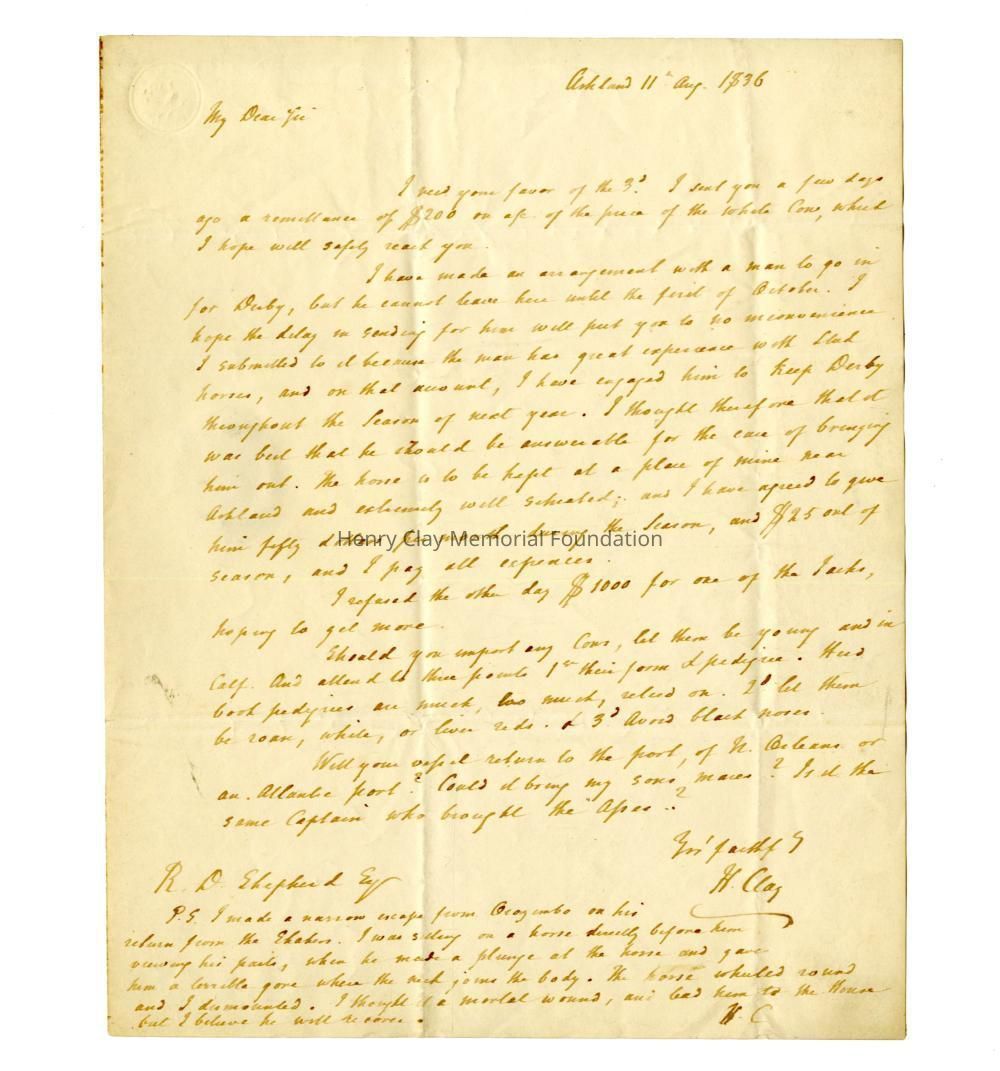 Ashland 11th Aug. 1836
My Dear Sir
I recd your favor of the 3d. I sent you a few days
ago a remittance of $200 on a/c of the price of the white Cow, which
I hope will safely reach you.
I have made an arrangement with a man to go in
for Derby, but he cannot leave here until the first of October. I
hope the delay in sending for him will put you to no inconvenience
I submitted to it because the man has great experience with Stud
horses, and on that account, I have engaged him to keep Derby
throughout the Season of next year. I thought therefore that it
was best that he should be answerable for the care of bringing
him out. The horse is to be kept at a place of mine near
Ashland and extremely well situated; and I have agreed to give
him fifty dollars per month during the Season, and $25 out of
Henry Clay Memorial Foundation
season, and I pay all expences.
I refused the other day $1000 for one of the Jacks,
hoping to get more.
Should you import any Cows, let them be young and in
Calf. And attend to three points 1st their form & pedigree. Herd
book pedigrees are much, too much, relied on. 2d let them
be roan, white, or liver reds. & 3d Avoid black noses.
Will your vessel return to the port, of N. Orleans or
an Atlantic port? Could it bring my sons mares? Is it the
same Captain who brought the Asses?
Yrs faithfy
H. Clay
R. D. Shepherd Esqr
P.S. I made a narrow escape from Orozimbo on his
return from the Shakers. I was sitting on a horse directly before him
viewing his parts, when he made a plunge at the horse and gave
him a terrible gore where the neck joins the body. The horse wheeled round
and I dismounted. I thought it a mortal wound, and lead him to the House
but I believe he will recover.
H. C